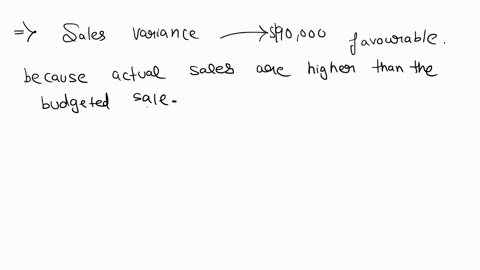 => Sales variance → $90,000 favourable.
because actual sales are higher than the
budgeted sale.